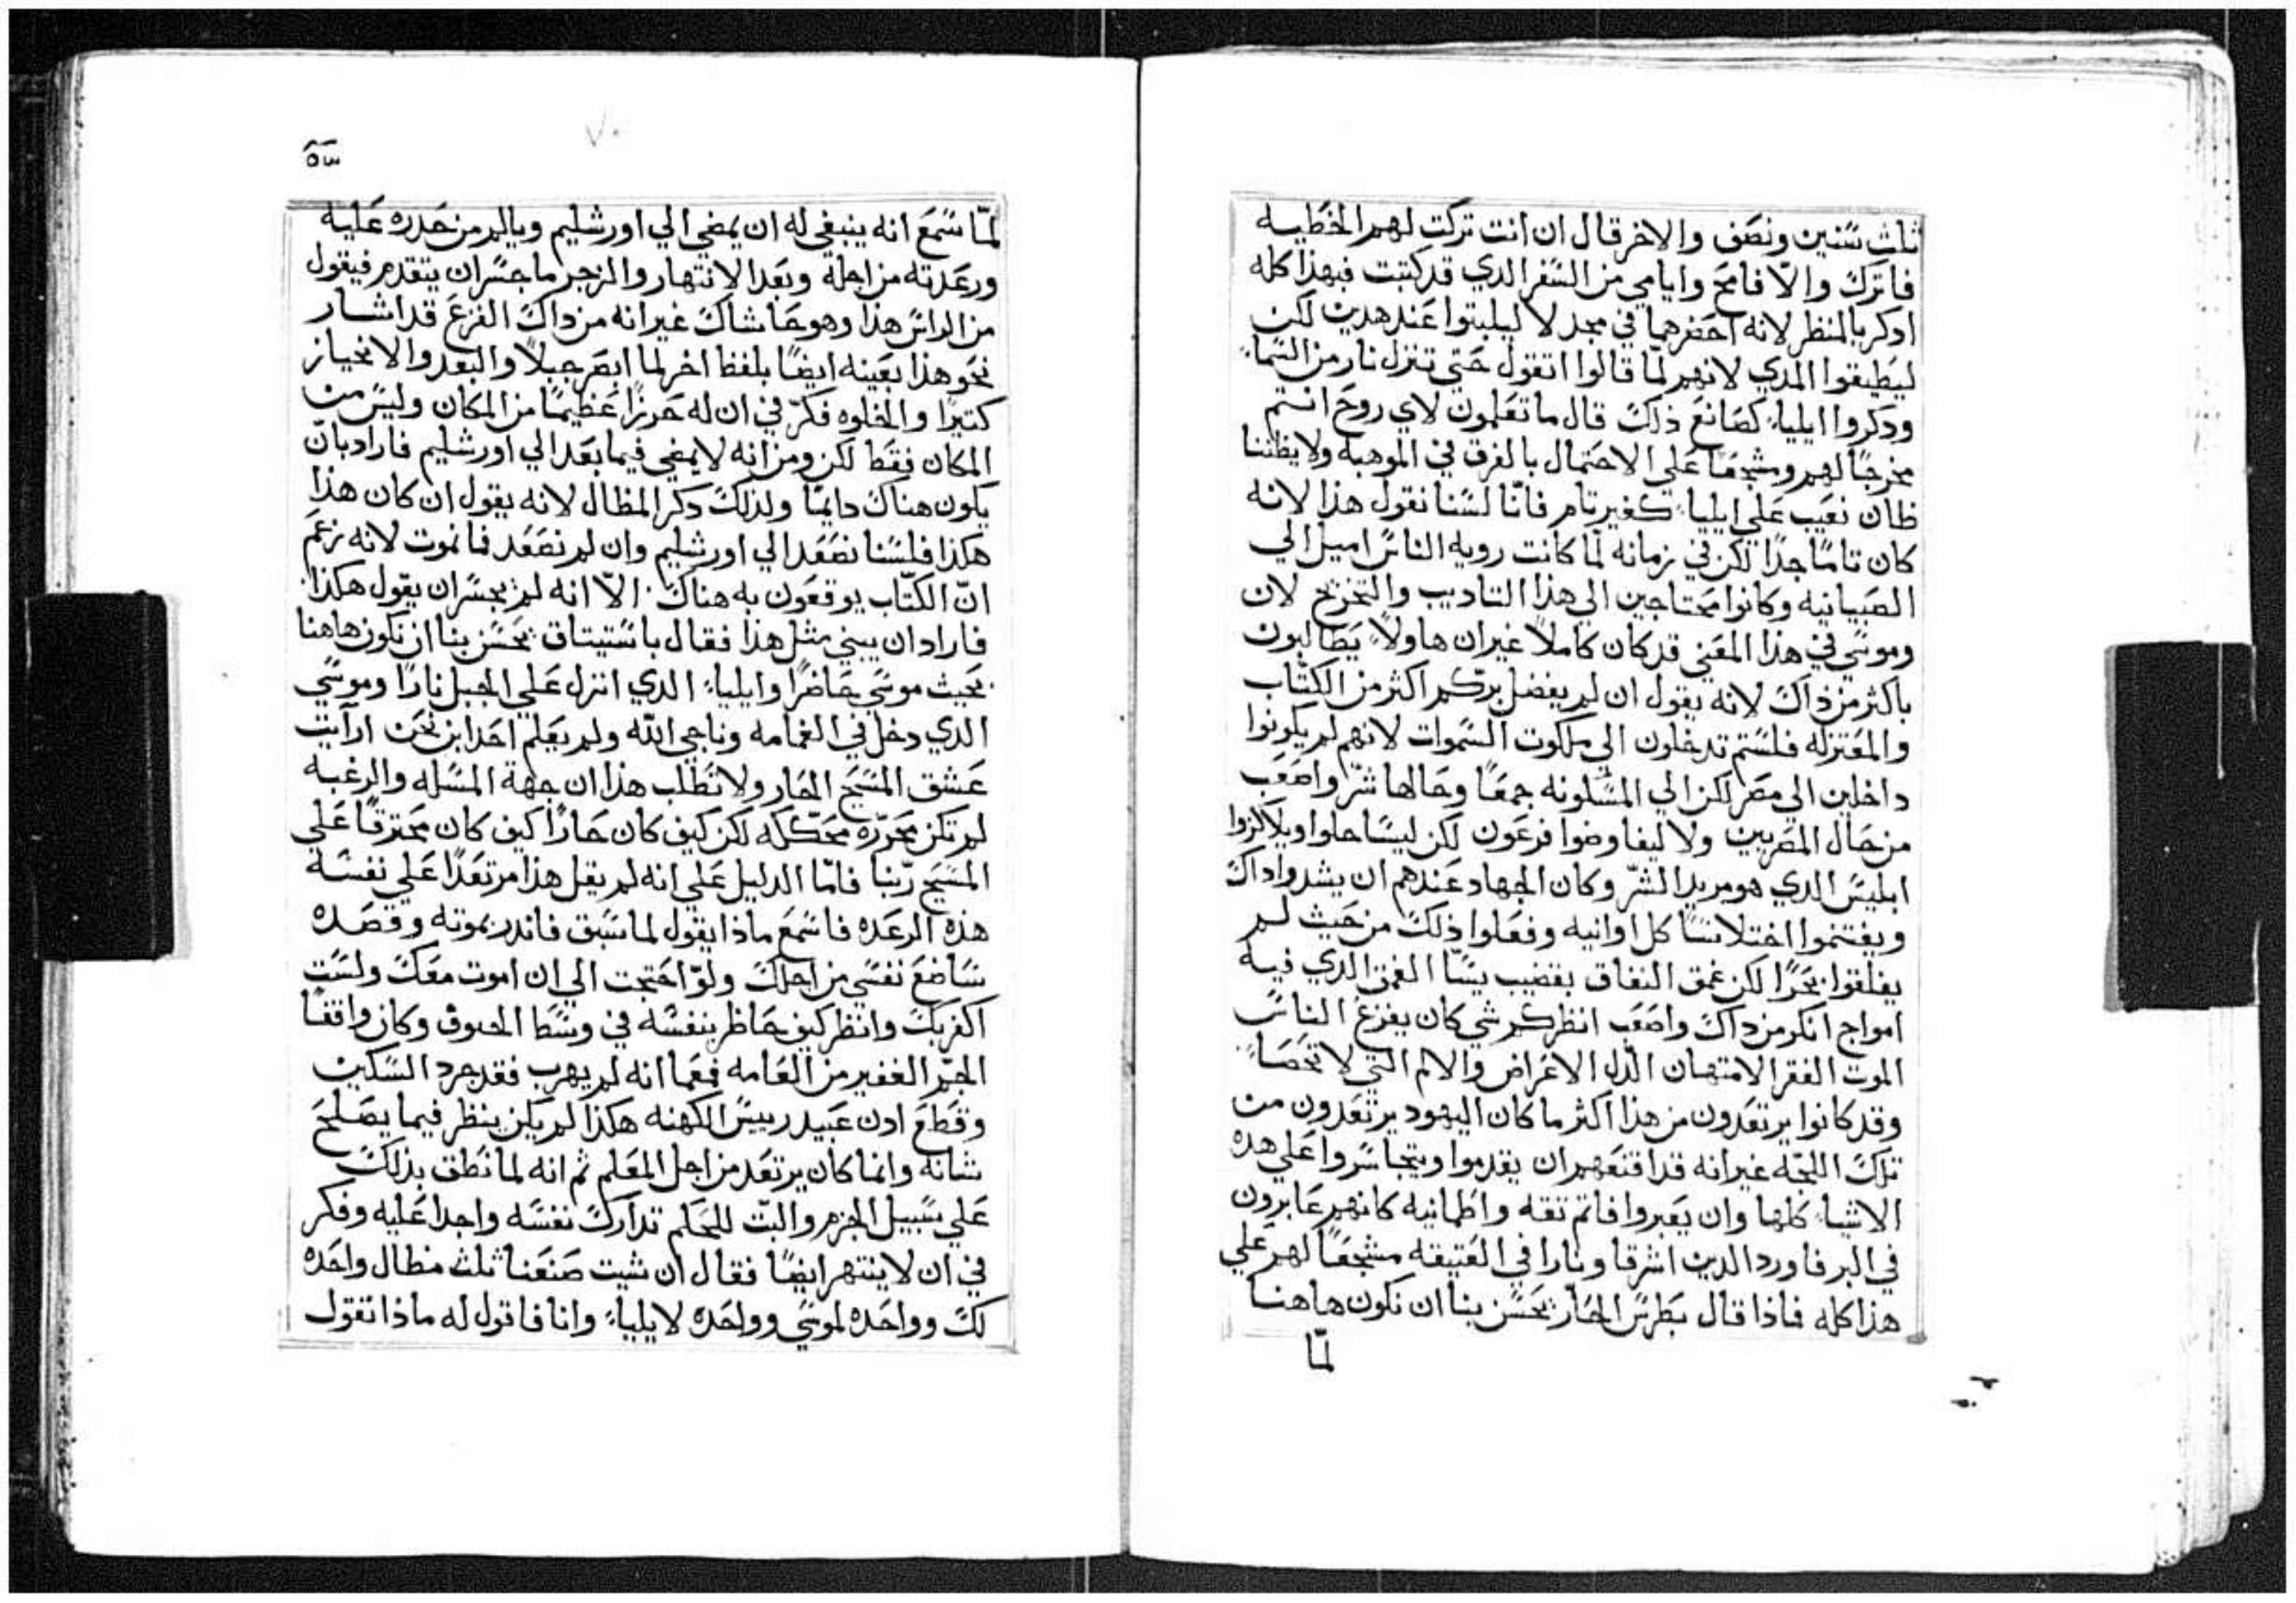 ثلث سنين ونصف والاخر قال ان انت تركت لهم الخطيه
فاترك والّا فامح وايامي من السفر الدي قد كتبت فبهذا كله
ادكر بالمنظر لانه احضرهما في مجد لا ليلبتوا عند هدين لكن
ليطيقوا المدي لانهم لمّا قالوا اتقول حتى تنزل نار من السماء
ودكروا ايلياء كصانع ذلك قال ما تعلمون لاي روح انتم
مخرجًا لهم ومشجعًا على الاحتمال بالفرق في الموهبه ولا يظننا
ظان نعيب علي ايلياء كغير تام فانّا لسنا نقول هذا لانه
كان تامًا جدًا لكن في زمانه لمّا كانت رويه الناس اميل الي
الصبيانيه وكانوا محتاجين الي هذا التاديب والتخرج لان
وموسي في هذا المعني قد كان كاملًا غير ان هاولاء يطالبون
باكثر من ذاك لانه يقول ان لم يفضل برّكم اكثر من الكتّاب
والمعتزله فلستم تدخلون الي ملكوت السموات لانهم لم يكونوا
داخلين الي مصر لكن الي المسكونه جمعًا وحالها شرّ واصعب
من حال المصريين ولا ليفاوضوا فرعون لكن ليسًا حاوا ويلاكزوا
ابليس الدي هو مريد الشرّ وكان الجهاد عندهم ان يشدوا داك
ويغتنموا اختلاسًا كل اوانيه وفعلوا ذلك من حيث لم
يفلقوا بحرًا لكن عمق النفاق بقضيب يسّا العمق الدي فيه
امواج انكر من داك واصعب انظر كم شي كان يفزع الناس
الموت الفقر الامتهان الذل الاعراض والالم التي لا تحصاء
وقد كانوا يرتعدون من هذا اكثر ما كان اليهود يرتعدون من
تلك اللجّه غير انه قد اقنعهم ان يقدموا ويتجاسروا علي هده
الاشياء كلها وان يعبروا فاتم تقه واطمانيه كانهم عابرون
في البر فاورد الدين اشرقا ونارا في العتيقه مشجعًا لهم علي
هذا كله فاذا قال بطرس الحارّ يحسن بنا ان نكون هاهنا
لمّا
٧٠
لمّا سمع انه ينبغي له ان يمضي الي اورشليم ويالم من حدره عليه
ورعدته من اجله وبعد الانتهار والزجر ما جسر ان يتقدم فيقول
من الراس هذا وهو حاشاك غير انه من داك الفزع قد اشار
نحو هذا بعينه ايضًا بلفظ اخر لما ابصر جبلًا والبعد والانحياز
كتيرًا والخلوه فكرّ في ان له حرزًا عظيمًا من المكان وليس من
المكان فقط لكن ومن انه لا يمضي فيما بعد الي اورشليم فاراد بانّ
يكون هناك دايمًا ولذلك دكر المظال لانه يقول ان كان هذا
هكذا فلسنا نصعد الي اورشليم وان لم نصعد فما نموت لانه زعم
انّ الكتّاب يوقعون به هناك الّا انه لم يجسر ان يقول هكذا
فاراد ان يبني مثل هذا فقال باستيتاق يحسن بنا ان نكون هاهنا
بحيث موسي حاضرًا وايلياء الدي انزل علي الجبل نارًا وموسي
الدي دخل في الغمامه وناجي اللّه ولم يعلم احد اين نحن ارآيت
عشق المسيح الحار ولا تطلب هذا ان جهة المسله والرغبه
لم تكن محرّره محكّكه لكن كيف كان حارًا كيف كان محترقًا علي
المسيح ربّنا فامّا الدليل علي انه لم يقل هذا مرتعدًا علي نفسه
هذه الرعده فاسمع ماذا يقول لما سبق فاندر بموته وقصده
ساضع نفسي من اجلك ولو احتجت الي ان اموت معك ولست
اكفر بك وانظر كيف خاطر بنفسه في وسط الحتوف وكان واقفًا
الجمّ الغفير من العامه فعما انه لم يهرب فقد جرد السكين
وقطع ادن عبيد رييس الكهنه هكذا لم يكن ينظر فيما يصلح
شانه وانما كان يرتعد من اجل المعلم ثم انه لما نطق بذلك
علي سبيل الجزم والبتّ للحكم تدارك نفسه واجدا عليه وفكر
في ان لا ينتهر ايضًا فقال ان شيت صنعنا ثلث مظال واحده
لك وواحده لموسي وواحده لايلياء وانا فاقول له ماذا تقول